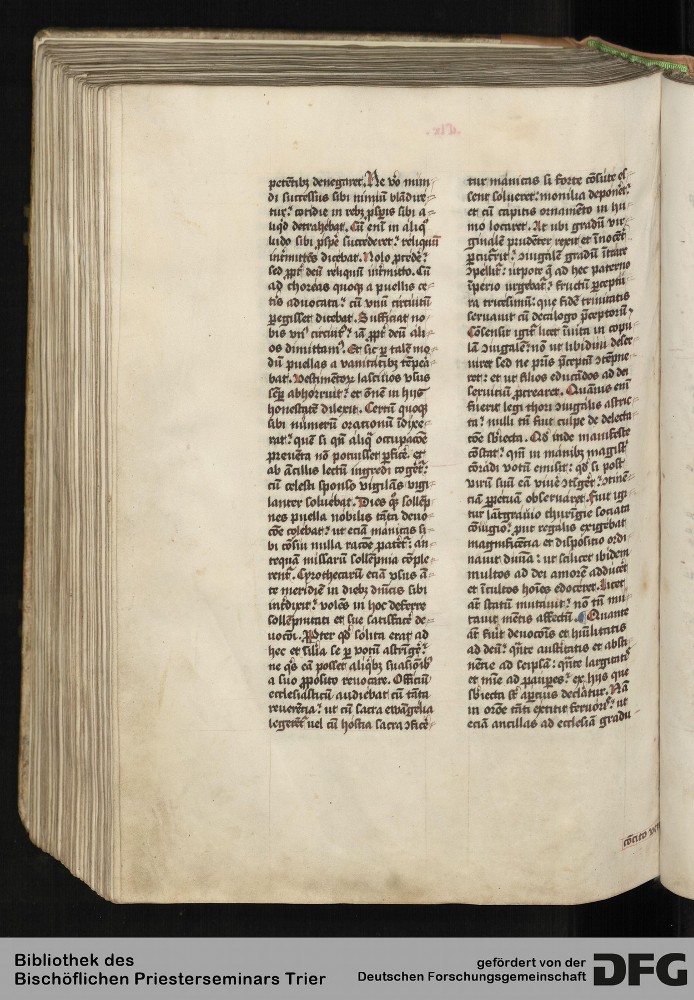 petētibȝ denegaret. Ne vo mun⸗
di successus sibi nimiū blādire⸗
tur: cotidie in rebȝ psperis sibi a⸗
liqd detrahebat. Cū enī in aliq
ludo sibi pspe succederet: reliquū
intmittēs dicebat. Nolo pcedē:
sed ppt deū reliquū intmitto. Cū
ad choreas quoqȝ a puellis ce⸗
tis aduocata: cū vnū circuitū
pegisset dicebat. Sufficiat no⸗
bis vnꝰ circuitꝰ: iā ppt deū ali⸗
os dimittamꝰ. Et sic p talē mo⸗
dū puellas a vanitatibȝ tēpea⸗
bat. Vestimentoꝝ lasciuos vsus
semp abhorruit: et ōnē in hijs
honestatē dilexit. Certū quoqȝ
sibi numerū orationū īdixe⸗
rat: quē si qn aliq occupacōe
preuenta nō potuisset pfice. et
ab ācillis lectū ingredi cogēt:
cū celesti sponso vigilās vigi⸗
lanter soluebat. Dies qqȝ sollēp
nes puella nobilis tāta deuo⸗
cōe colebat: ut eciā manicas si⸗
bi cōsui nulla racōe patēt: an⸗
tequā missarū sollēpnia cōple⸗
rent. Cyrothecarū eciā vsus ā⸗
te meridiē in diebȝ dnicis sibi
intdixit: volēs in hoc deferre
sollēpnitati et sue satisface de⸗
uocōi. Pter qd solita erat ad
hec et silia se p votū astrīge:
ne qs eā posset aliqbȝ suasioibꝰ
a suo pposito reuocare. Officiū
ecclesiasticū audiebat cū tāta
reuerētia: ut cū sacra ewāgelia
legerēt vel cū hostia sacra ɔfice⸗
tur manicas si forte cōsute es⸗
sent solueret: monilia deponet:
et cū capitis ornamēto in hu⸗
mo locaret. At ubi gradū vir⸗
ginalē prudēter rexit et īnocēt
pcucrrit: ɔiugalē gradū ītrare
ɔpellit: utpote q ad hec paterno
īperio urgebat: fructū pceptu
ra tricesimū: que fidē trinitatis
seruauit cū decalogo pceptorū:
Cōsensit igit licet īuita in copu
lā ɔiugalē: nō ut libidini deser
uiret sed ne pris pceptū ɔtēpne
ret: et ut filios educādos ad dei
seruiciū pcrearet. Quāuis enī
fuerit legi thori ɔiugalis astric
ta: nulli tn fuit culpe de delecta⸗
cōe sbiecta. Qd inde manifeste
cōstat: qm in manibȝ magist
cōradi votū emisit: qd si post
virū suū eā viuē ɔtīget: ɔtinē⸗
ciā ppetuā obseruaret. Fuit igi⸗
tur lātgrauio thuringie sociata
cōiugio: put regalis exigebat
magnificētia et dispositio ordi⸗
nauit diuīa: ut scilicet ibidem
multos ad dei amorē adducēt
et īcultos hoīes edoceret. Licet
āt statū mutauit: nō tn mu⸗
tauit mētis affectū. Quante
āt fuit deuocōis et hūilitatis
ad deū: qnte austitatis et absti⸗
nētie ad seipsā: qnte largitatꝭ
et mie ad paupes: ex hijs que
sbiecta st aptius declātur. Nā
in oroē tāti extitit feruoris: ut
eciā ancillas ad ecclesiā gradu